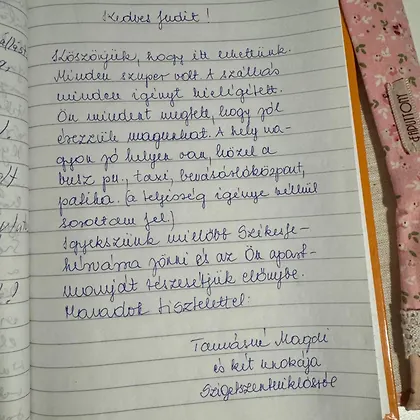 Kedves Judit!
Köszönjük, hogy itt lehettünk.
Minden szuper volt. A szállás
minden igényt kielégített.
Ön mindent megtett, hogy jól
érezzük magunkat. A hely na-
gyon jó helyen van, közel a
busz pu., taxi, bevásárlóközpont,
patika. (a teljesség igénye nélkül
soroltam fel.)
Igyekszünk mielőbb Székesfe-
hérvárra jönni és az Ön apart-
manját részesítjük előnybe.
Maradok tisztelettel:
Tamásné Magdi
és két unokája
Szigetszentmiklósról